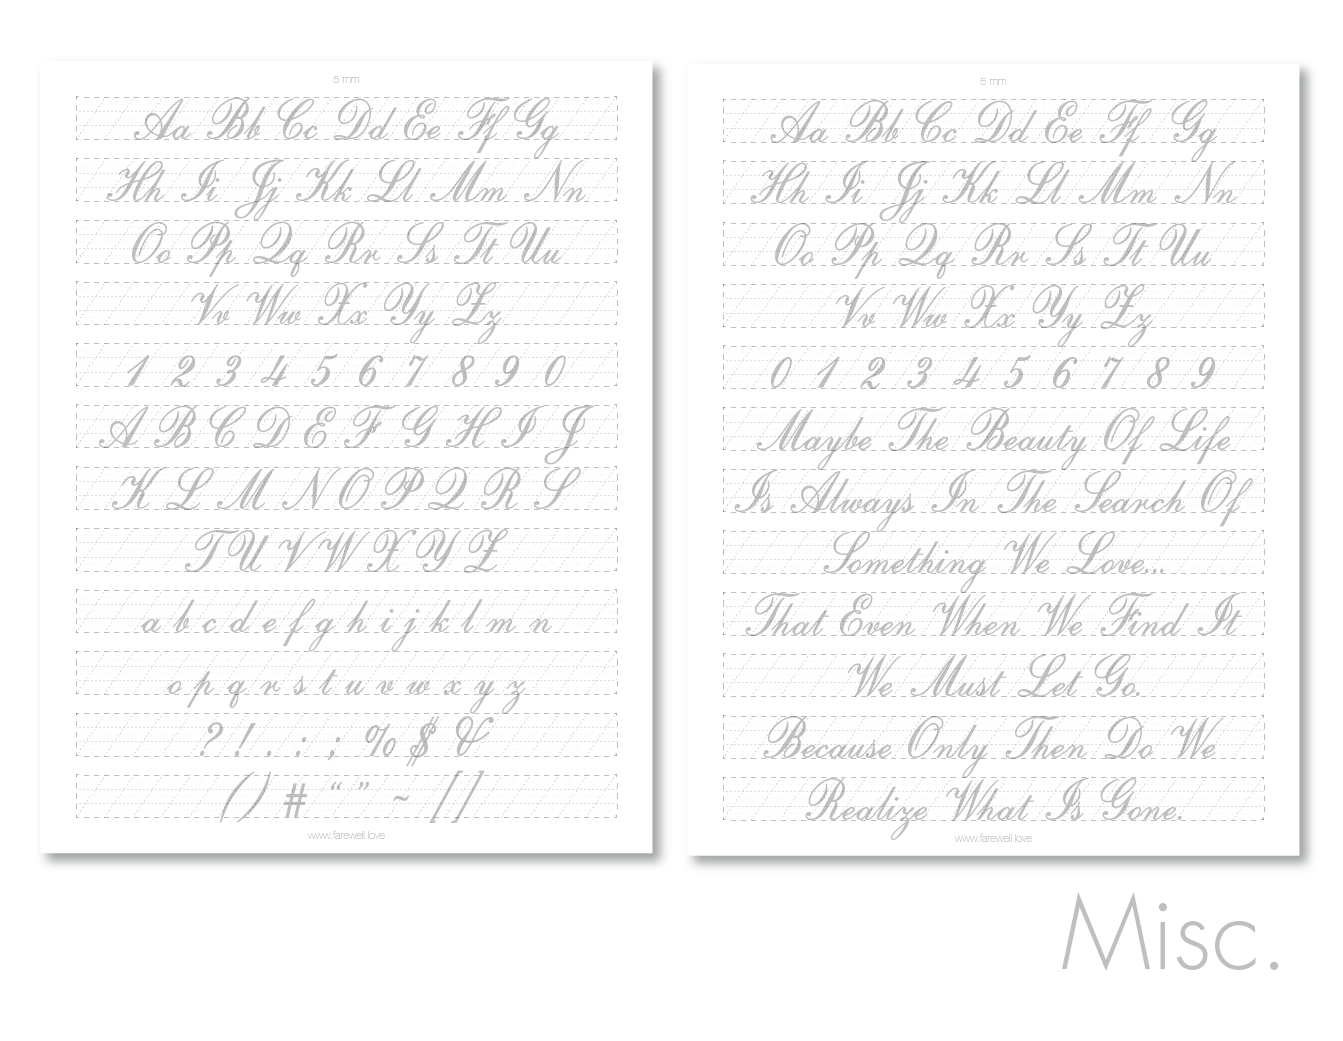 5 mm
Aa Bb Cc Dd Ee Ff Gg
Hh Ii Jj Kk Ll Mm Nn
Oo Pp Qq Rr Ss Tt Uu
Vv Ww Xx Yy Zz
1 2 3 4 5 6 7 8 9 0
A B C D E F G H I J
K L M N O P Q R S
T U V W X Y Z
a b c d e f g h i j k l m n
o p q r s t u v w x y z
? ! . : ; % $ &
( ) # “ ” ~ [ ]
www.farewell.love
5 mm
Aa Bb Cc Dd Ee Ff Gg
Hh Ii Jj Kk Ll Mm Nn
Oo Pp Qq Rr Ss Tt Uu
Vv Ww Xx Yy Zz
0 1 2 3 4 5 6 7 8 9
Maybe The Beauty Of Life
Is Always In The Search Of
Something We Love...
That Even When We Find It
We Must Let Go.
Because Only Then Do We
Realize What Is Gone.
www.farewell.love
Misc.